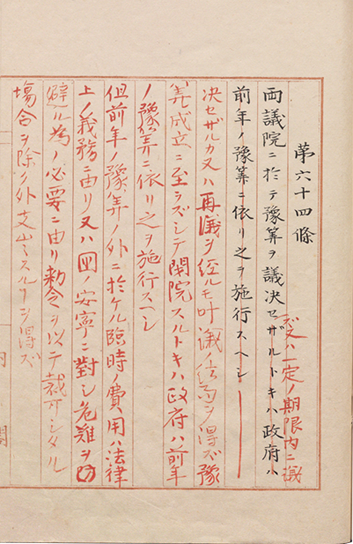 第六十四條
又ハ一定ノ期限内ニ議
両議院ニ於テ豫筭ヲ議決セザルトキハ政府ハ
前年ノ豫筭ニ依リ之ヲ施行スヘシ
決セザルカ又ハ再議ヲ経ルモ叶議ノ ヲ得ズ豫
筭成立ニ至ラズシテ閉院スルトキハ政府ハ前年
ノ豫筭ニ依リ之ヲ施行スヘシ
但前年ノ豫筭ノ外ニ於ケル臨時ノ費用ハ法律
上ノ義務ニ由リ又ハ国ノ安寧ニ對シ危難ヲ防
避ル為ノ必要ニ由リ勅令ヲ以テ裁可シタル
場合ヲ除ク外支出スルヿヲ得ズ